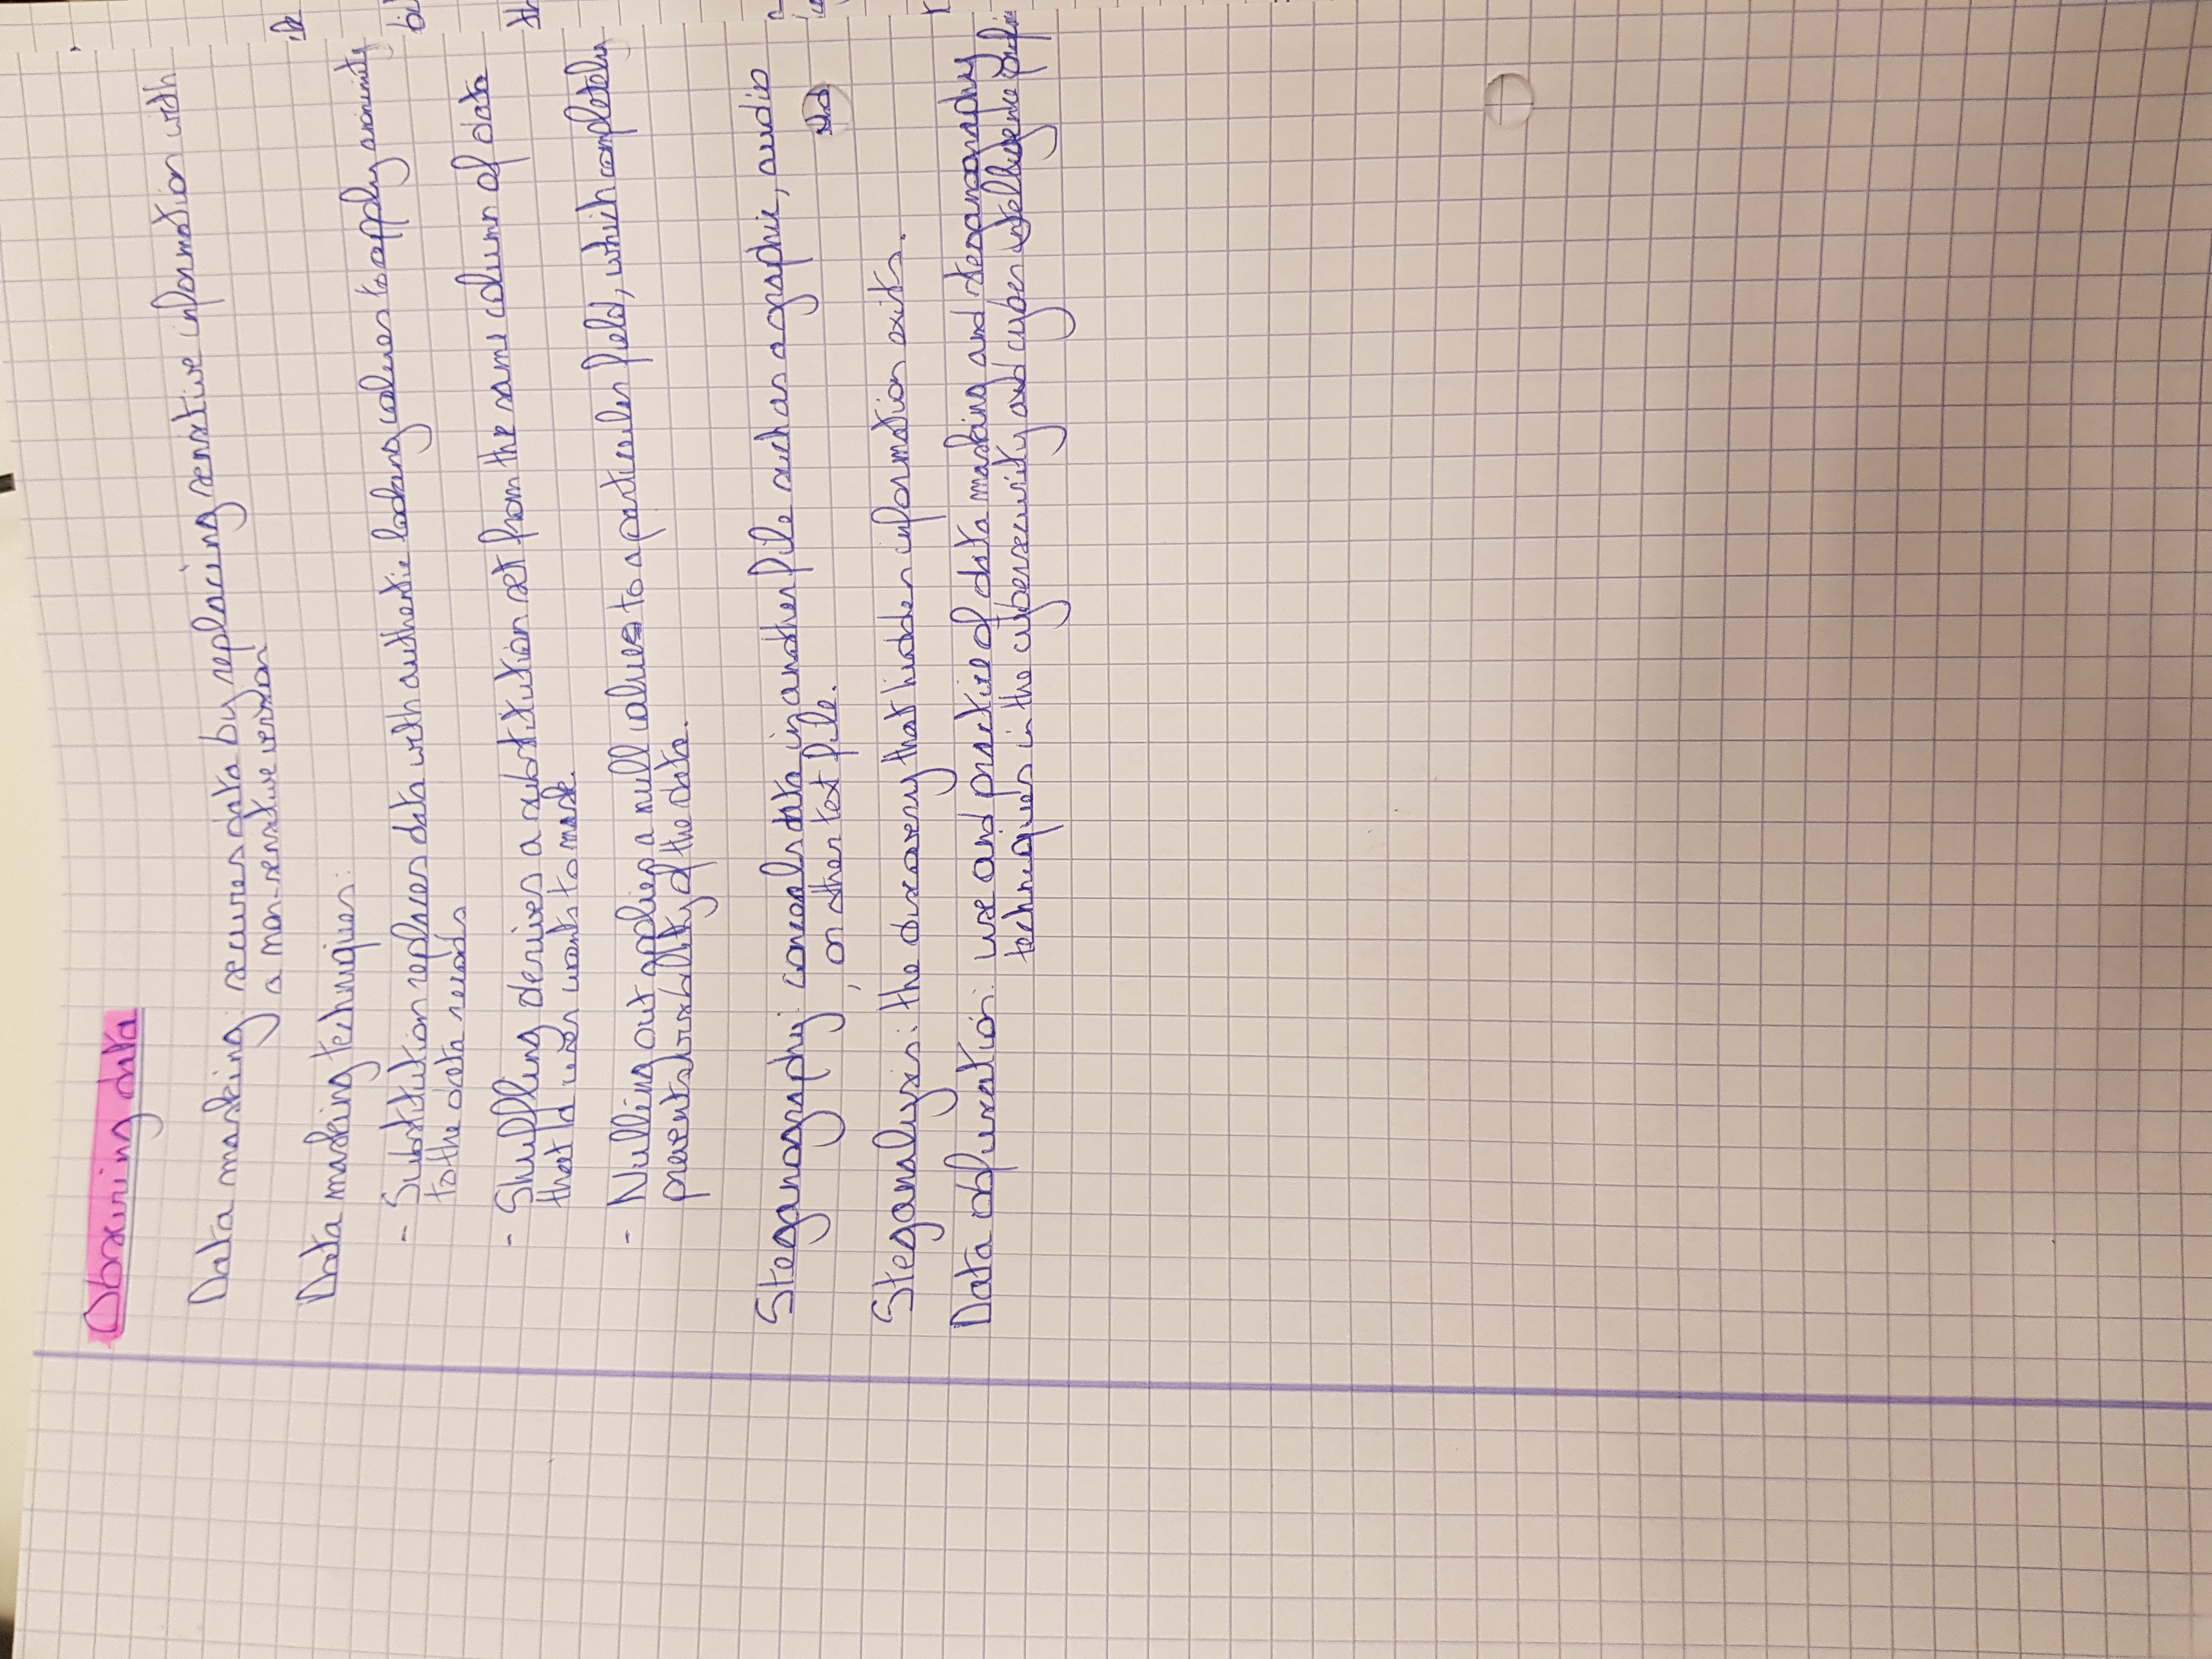 Obscuring data
Data masking: secures data by replacing sensitive information with
a non-sensitive version
Data masking techniques:
- Substitution replaces data with authentic looking values to apply anonimity
to the data records
- Shuffling derives a substitution set from the same column of data
that a user wants to mask.
- Nulling out applies a null values to a particular field, which completely
prevents visibility of the data.
Steganography: conceals data in another file such as a graphic, audio
, or other text file.
Steganalysis: the discovery that hidden information exits.
Data obfuscation: use and practice of data masking and steganography
techniques in the cybersecurity and cyber intelligence